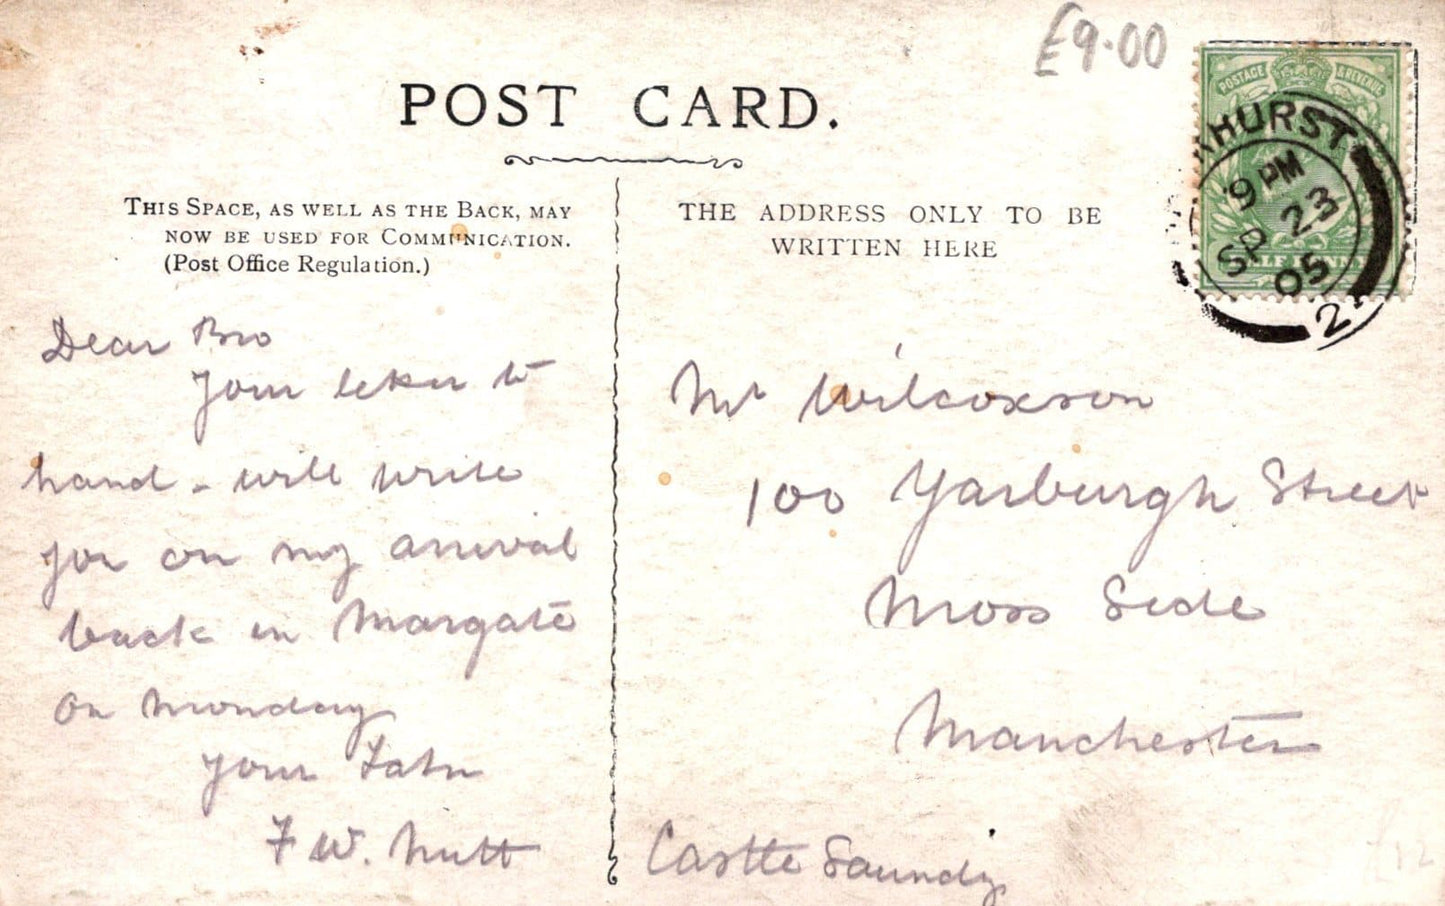 £9.00
POST CARD.
POSTAGE & REVENUE
HURST
9 PM
SP 23
05
2
HALF PENNY
THIS SPACE, AS WELL AS THE BACK, MAY
NOW BE USED FOR COMMUNICATION.
(Post Office Regulation.)
THE ADDRESS ONLY TO BE
WRITTEN HERE
Dear Bro
Your letter to
hand - will write
you on my arrival
back in Margate
on Monday
Your Fatn
F W. Nutt
Mr Wilcoxson
100 Yarburgh Street
Moss Side
Manchester
Castle Saundy
£12